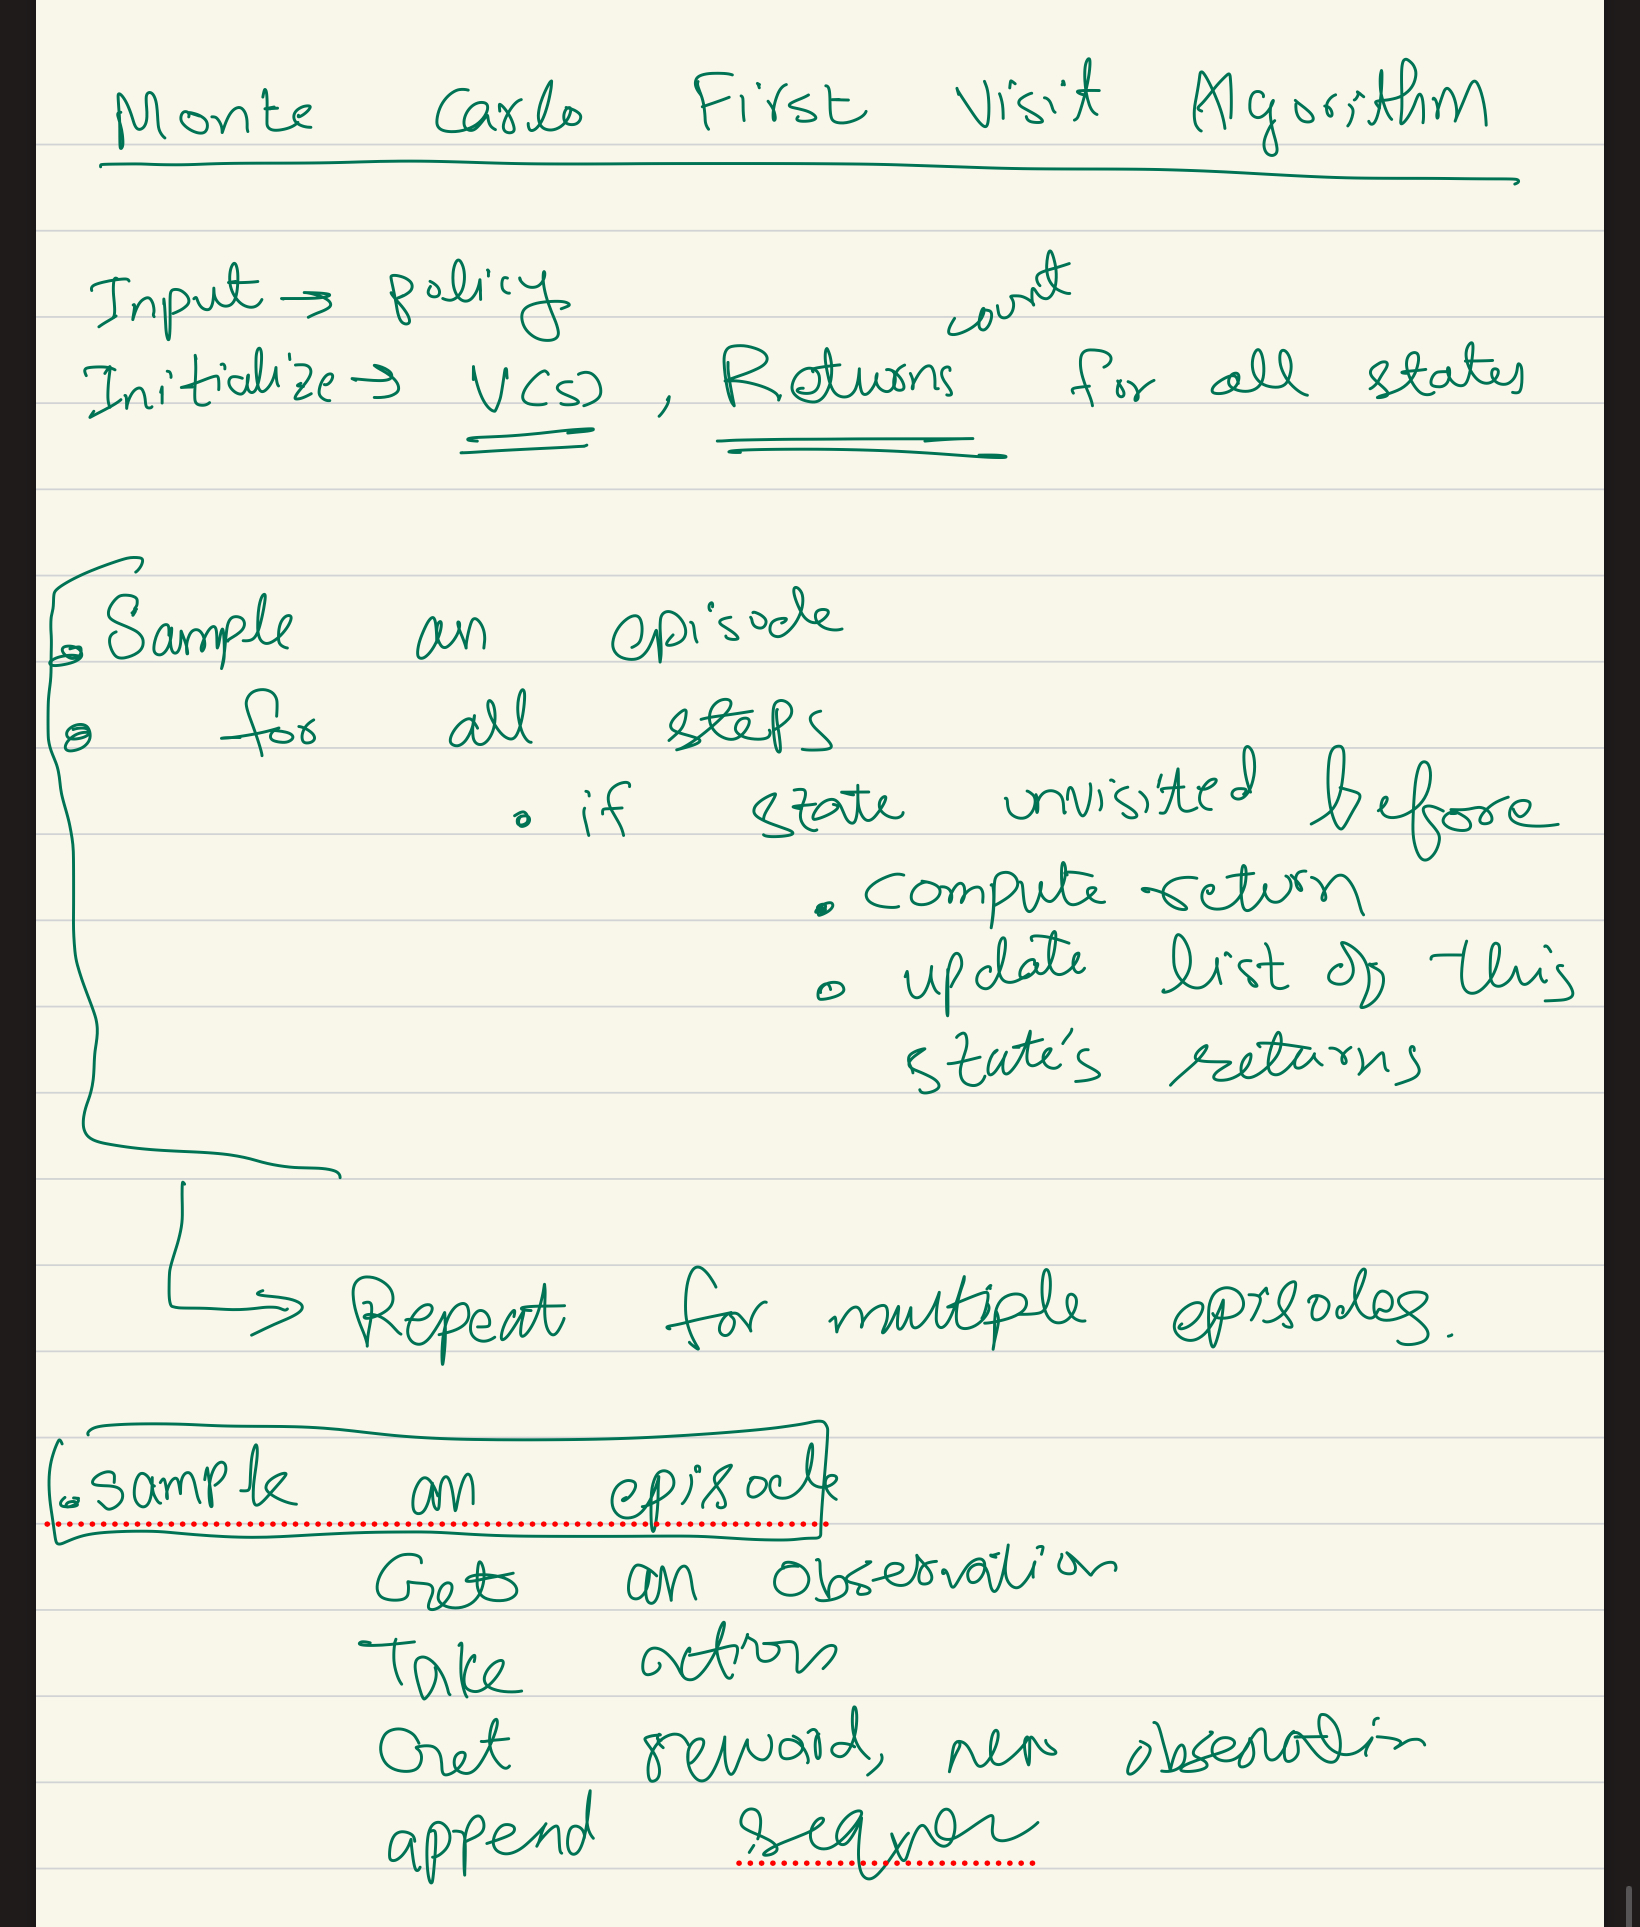 Monte Carlo First Visit Algorithm
Input → policy
count
Initialize → V(s), Returns for all states
• Sample an episode
• for all steps
• if state unvisited before
• compute return
• update list of this
state's returns
→ Repeat for multiple episodes.
• sample an episode
Get an observation
Take action
Get reward, new observation
append